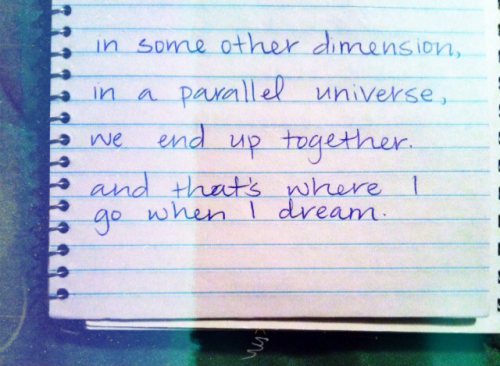 in some other dimension,
in a parallel universe,
we end up together.
and that's where I
go when I dream.